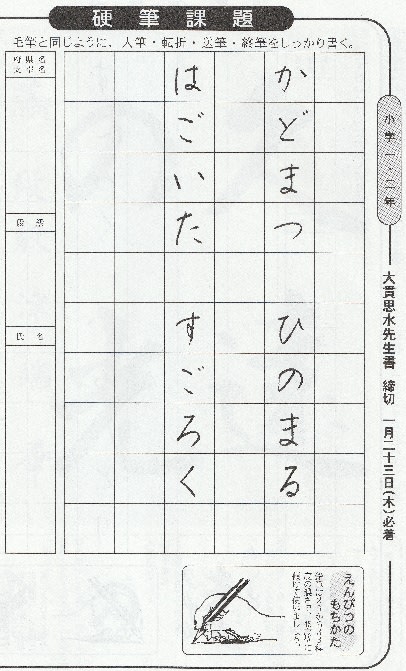 硬筆課題
毛筆と同じように、入筆・転折・送筆・終筆をしっかり書く。
小学一・二年
大貫思水先生書 締切 一月二十三日(木)必着
かどまつ ひのまる
はごいた すごろく
府県名
支部名
段級
氏名
えんぴつの
もちかた